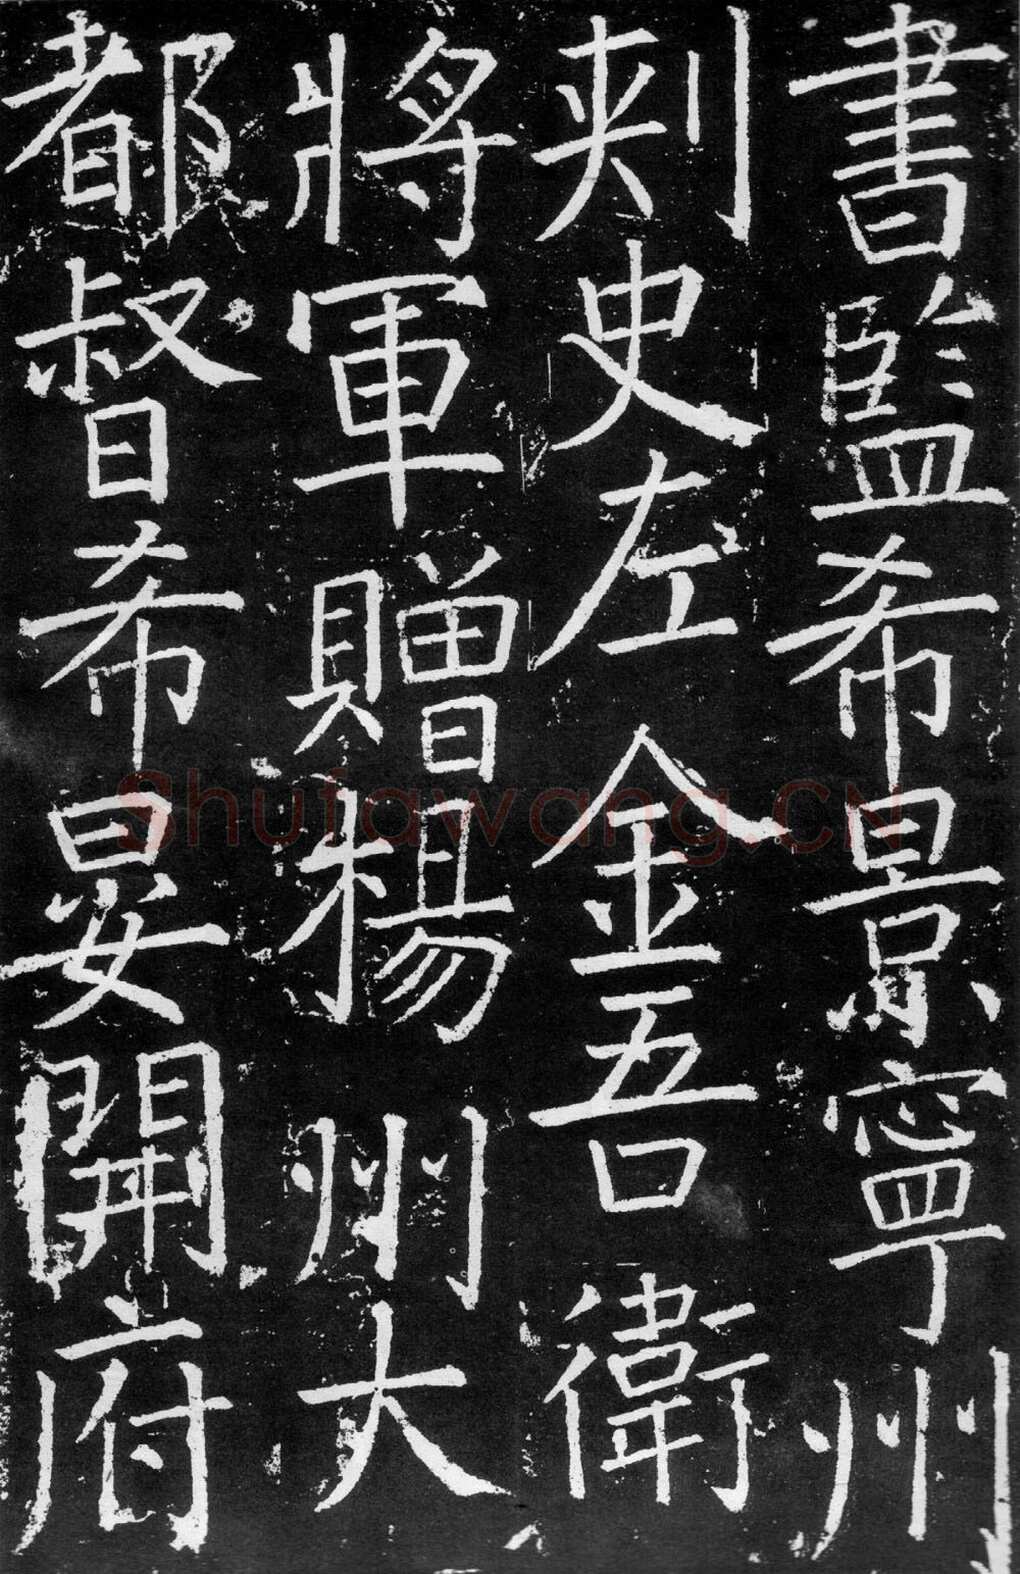 書監希景寧州
刺史左金吾衛
將軍贈揚州大
都督希晏開府
Shufawang.CN